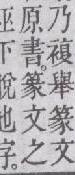 乃複舉篆文
原書篆文之
下說也字。